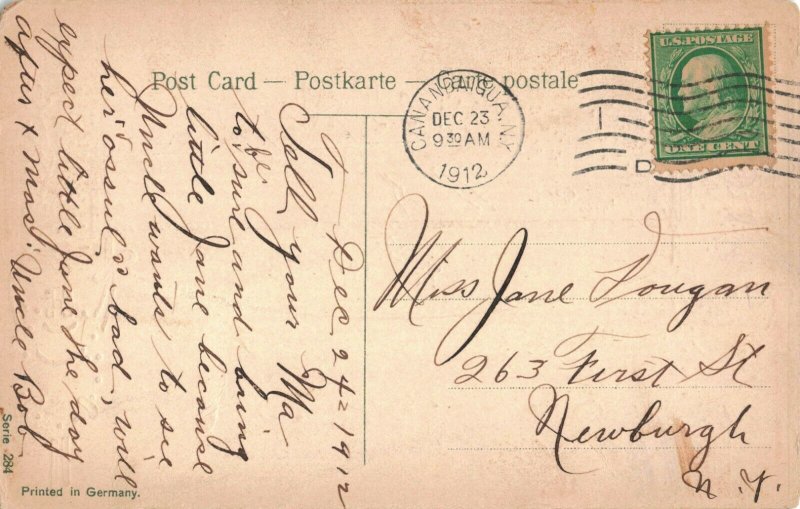 Post Card — Postkarte — Carte postale
CANANDAIGUA, N.Y.
DEC 23
9 30 AM
1912
U.S. POSTAGE
ONE CENT
Dec 24 = 1912
Tell your Ma
to be sure and bring
little Jane because
Uncl wants to see
her bad, will
expect little Jane the day
after X mas. Uncle Bob
Miss Jane Dougan
263 First St
Newburgh
N. Y.
Serie 284
Printed in Germany.